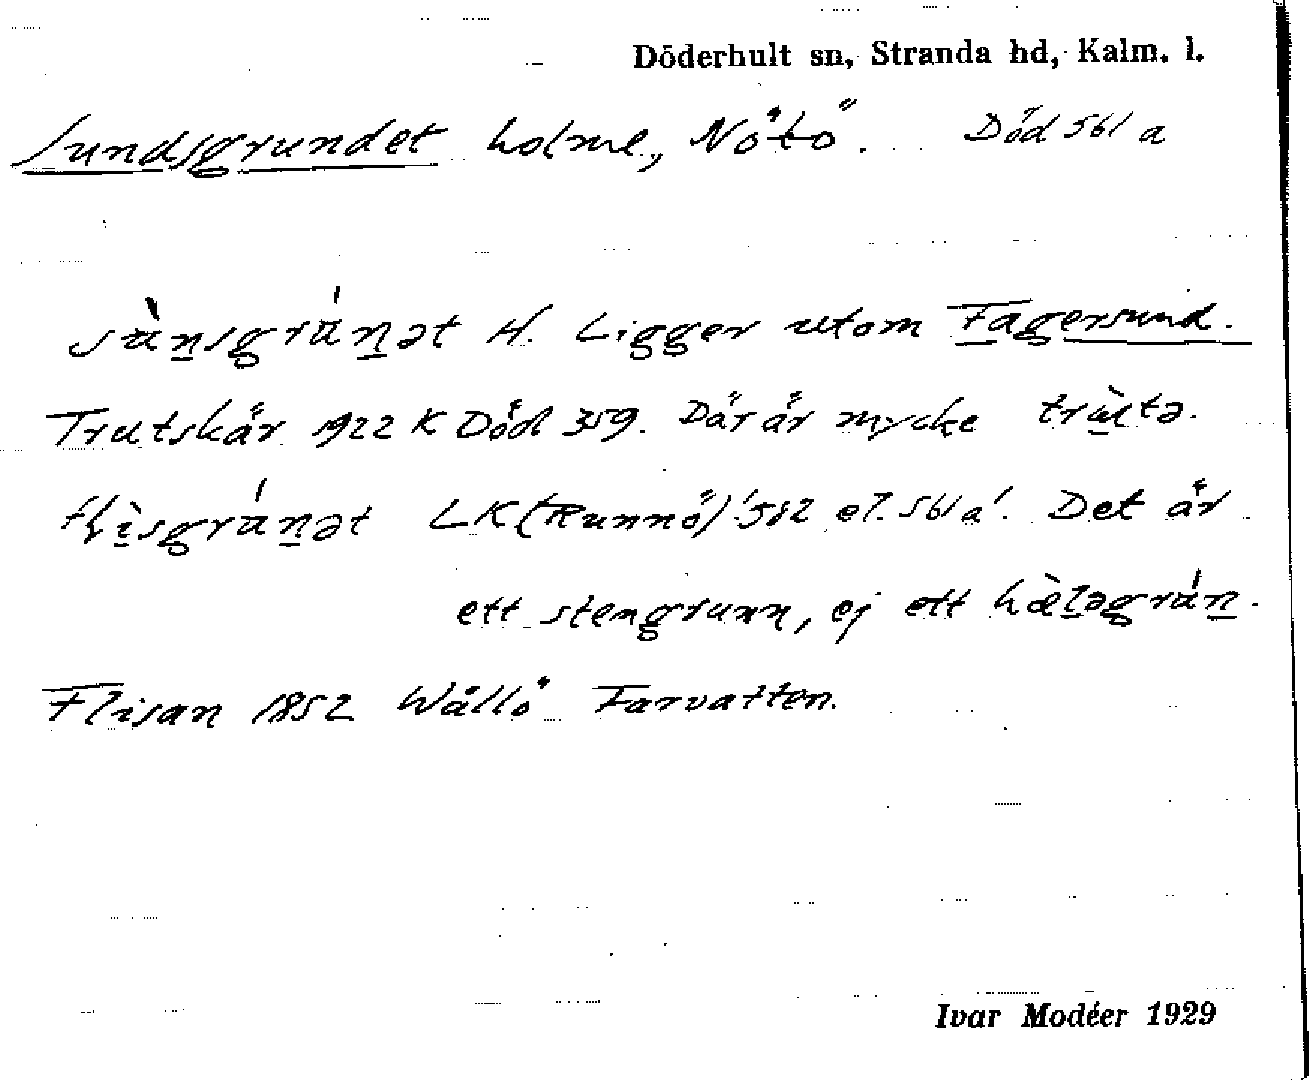 Döderhult sn, Stranda hd, Kalm. l.
Sundsgrundet holme, Nötö. Död 561 a
sùn̲sgrún̲ət H. Ligger utom Fagersund.
Trutskär 1922 K Död 359. Där är mycke trù̲tə.
flì̲sgrún̲ət LK (Runnö) '582 el. 561 a'. Det är
ett stengrunn, ej ett hæ̀l̲əgrún̲.
Flisan 1852 Wållö Farvatten.
Ivar Modéer 1929